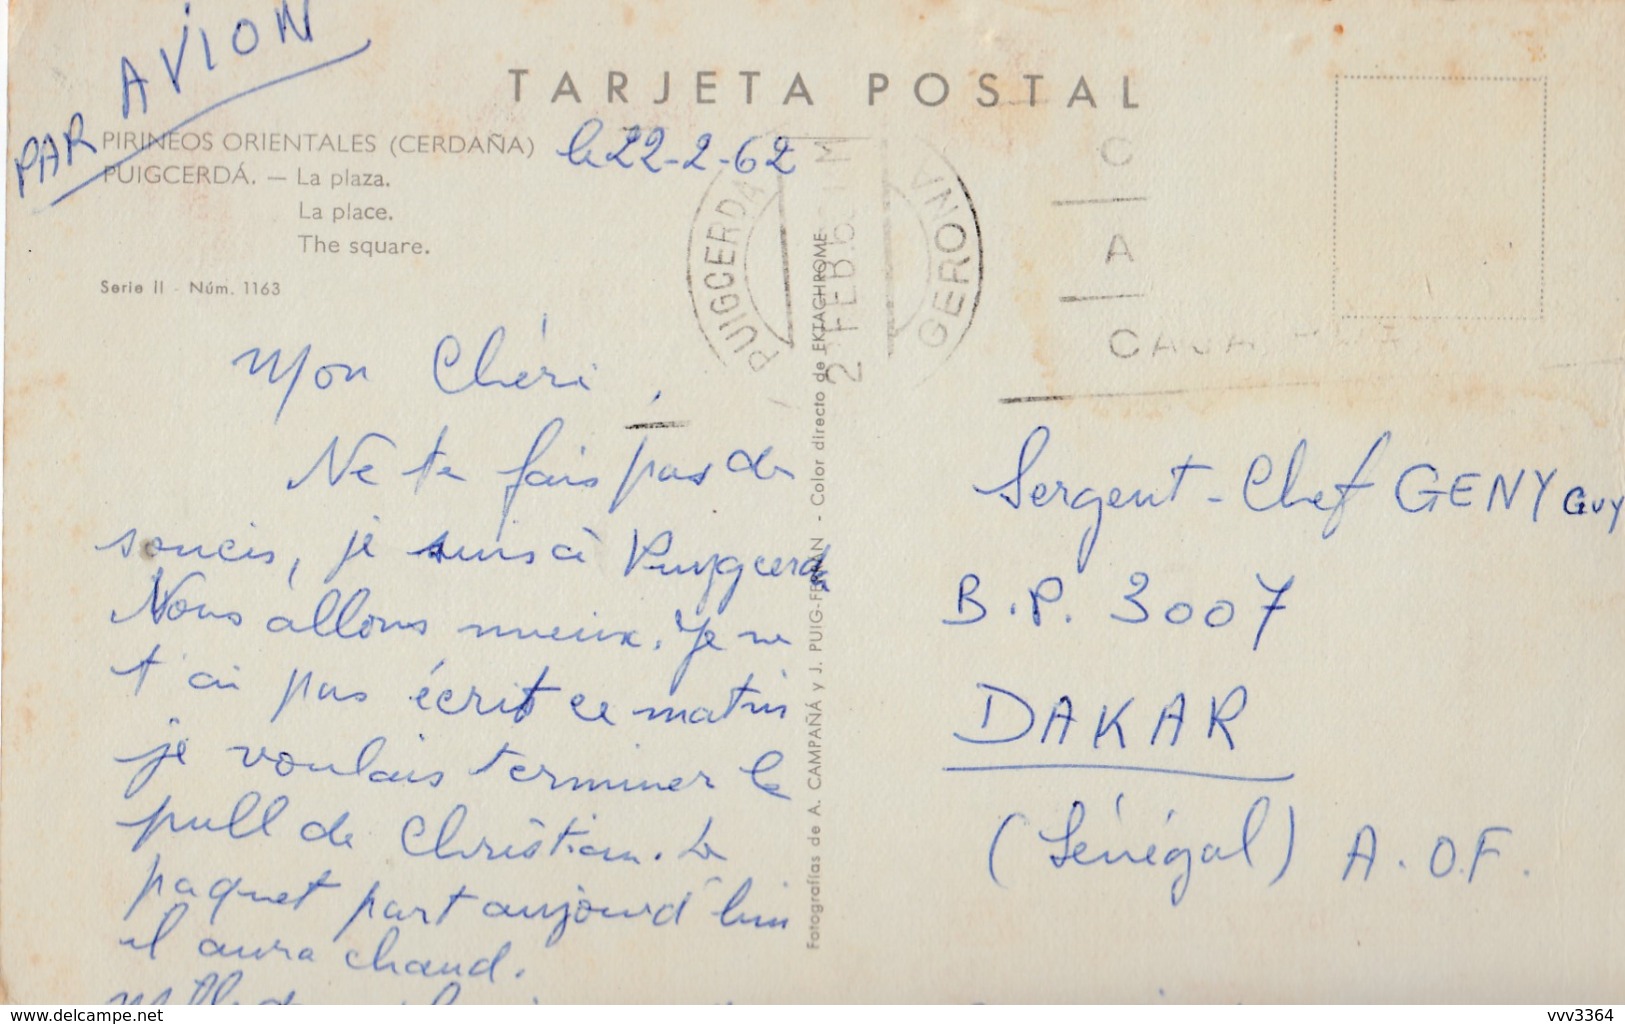 PAR AVION
TARJETA POSTAL
PIRINEOS ORIENTALES (CERDAÑA)
PUIGCERDÁ. — La plaza.
La place.
The square.
Serie II - Núm. 1163
le 22-2-62
PUIGCERDA
2 FEB.6 M
GERONA
C
A
Mon Chéri,
Ne te fais pas de
soucis, je suis à Puigcerda
Nous allons mieux. Je ne
t'ai pas écrit ce matin
je voulais terminer le
pull de Christian. Le
paquet part aujourd'hui
il aura chaud.
Fotografías de A. CAMPAÑÁ y J. PUIG-FERRÁN - Color directo de EKTACHROME
Sergent-Chef GENY Guy
B.P. 3007
DAKAR
(Sénégal) A.O.F.
www.delcampe.net
vvv3364